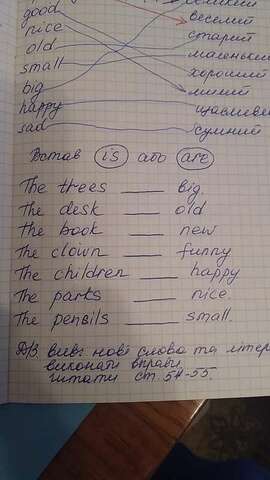 good
nice
old
small
big
happy
sad
великий
веселий
старий
маленький
хороший
милий
щасливий
сумний
Встав is або are
The trees ____ big.
The desk ____ old
The book ____ new
The clown ____ funny
The children ____ happy
The parks ____ nice.
The pencils ____ small.
Д/З. вивч нові слова та літер
виконати вправи
читати ст. 54-55